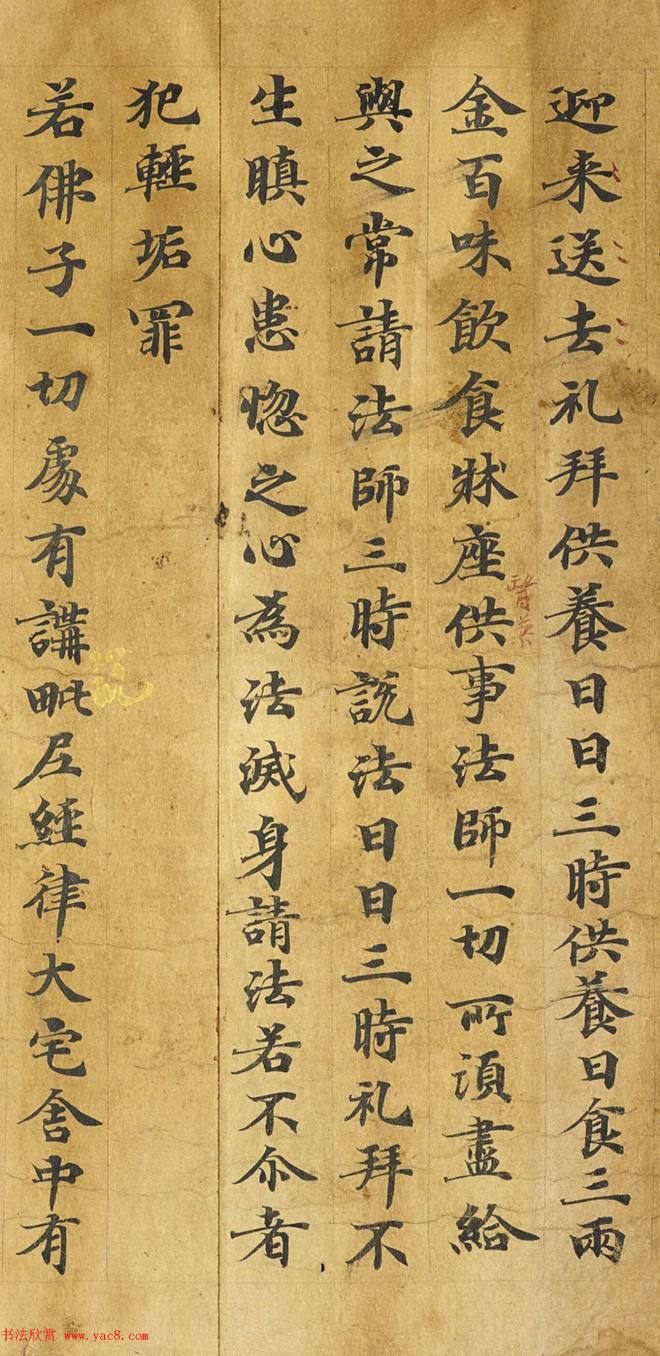 迎来送去礼拜供養日日三時供養日食三兩
金百味飲食牀座供事法師一切所須盡給
與之常請法師三時説法日日三時礼拜不
生瞋心患惚之心為法滅身請法若不尒者
犯輕垢罪
若佛子一切處有講毗尼經律大宅舍中有
书法欣赏 www.yac8.com